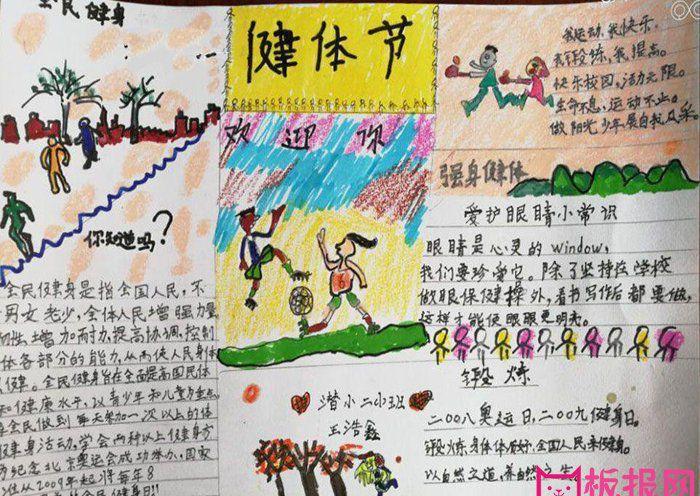 全民健身
你知道吗?
全民健身是指全国人民,不
男女老少,全体人民增强力量
韧性,增加耐力,提高协调,控制
体各部分的能力,从而使人民身体
健。全民健身旨在全面提高国民体
和健康水平,以青少年和儿童为重点
全民做到每天参加一次以上的体
健身活动,学会两种以上健身方
为纪念北京奥运会成功举办,国家
从2009年起,将每年8
为全民健身日!!
健体节
欢迎你
潜小二小班
王浩鑫
我运动,我快乐。
去锻炼,我提高。
快乐校园,活力无限。
生命不息,运动不止。
做阳光少年展自我风采。
强身健体
爱护眼睛小常识
眼睛是心灵的window,
我们要珍爱它。除了坚持在学校
做眼保健操外,看书写作后都要做,
这样才能使眼睛更明亮。
锻炼
二00八奥运日,二00九健身日。
锻炼身体体质好,全国人民来健身。
以自然之道,养自然之生。
板报网